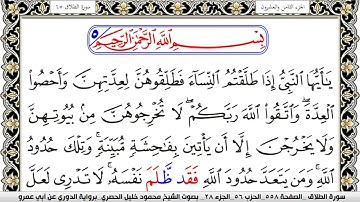 الجزء الثامن والعشرون سورة الطلاق ٦٥
بِسْمِ اللَّهِ الرَّحْمَٰنِ الرَّحِيمِ ٥
يَٰٓأَيُّهَا ٱلنَّبِيُّ إِذَا طَلَّقْتُمُ ٱلنِّسَآءَ فَطَلِّقُوهُنَّ لِعِدَّتِهِنَّ وَأَحْصُوا۟
ٱلْعِدَّةَ وَٱتَّقُوا۟ ٱللَّهَ رَبَّكُمْ لَا تُخْرِجُوهُنَّ مِنۢ بُيُوتِهِنَّ
وَلَا يَخْرُجْنَ إِلَّآ أَن يَأْتِينَ بِفَٰحِشَةٍ مُّبَيِّنَةٍ وَتِلْكَ حُدُودُ
ٱللَّهِ وَمَن يَتَعَدَّ حُدُودَ ٱللَّهِ فَقَد ظَّلَمَ نَفْسَهُۥ لَا تَدْرِى لَعَلَّ
سورة الطلاق .. الصفحة ٥٥٨ .الحزب ٥٦ .الجزء ٢٨ .. بصوت الشيخ محمود خليل الحصري .برواية الدوري عن أبي عمرو